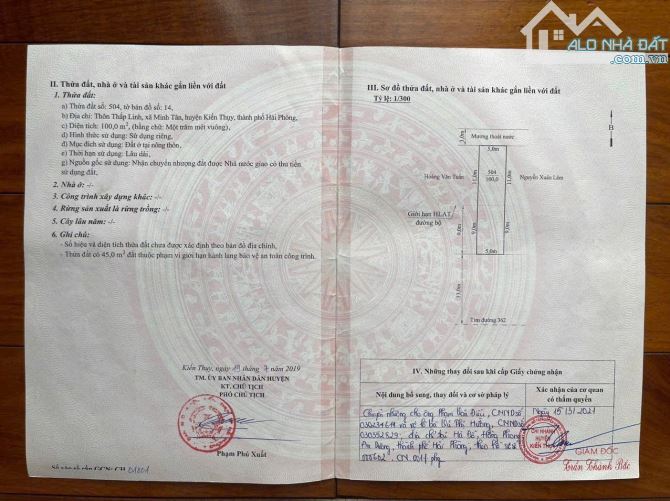 ALO NHÀ ĐẤT
.com.vn
II. Thửa đất, nhà ở và tài sản khác gắn liền với đất
1. Thửa đất:
a) Thửa đất số: 504, tờ bản đồ số: 14,
b) Địa chỉ: Thôn Thấp Linh, xã Minh Tân, huyện Kiến Thụy, thành phố Hải Phòng,
c) Diện tích: 100,0 m², (bằng chữ: Một trăm mét vuông),
d) Hình thức sử dụng: Sử dụng riêng,
đ) Mục đích sử dụng: Đất ở tại nông thôn,
e) Thời hạn sử dụng: Lâu dài,
g) Nguồn gốc sử dụng: Nhận chuyển nhượng đất được Nhà nước giao có thu tiền
sử dụng đất.
2. Nhà ở: -/-
3. Công trình xây dựng khác: -/-
4. Rừng sản xuất là rừng trồng: -/-
5. Cây lâu năm: -/-
6. Ghi chú:
- Số hiệu và diện tích thửa đất chưa được xác định theo bản đồ địa chính,
- Thửa đất có 45,0 m² đất thuộc phạm vi giới hạn hành lang bảo vệ an toàn công trình.
Kiến Thụy, ngày 19 tháng 7 năm 2019
TM. ỦY BAN NHÂN DÂN HUYỆN
KT. CHỦ TỊCH
PHÓ CHỦ TỊCH
Phạm Phú Xuất
III. Sơ đồ thửa đất, nhà ở và tài sản khác gắn liền với đất
Tỷ lệ: 1/300
B
Mương thoát nước
5.0m
Hoàng Văn Tuấn
11.0m
504
100,0
11.0m
Nguyễn Xuân Lãm
Giới hạn HLAT
đường bộ
9.0m
9.0m
5.0m
Tim đường 362
IV. Những thay đổi sau khi cấp Giấy chứng nhận
Nội dung bổ sung, thay đổi và cơ sở pháp lý
Xác nhận của cơ quan
có thẩm quyền
Chuyển nhượng cho ông Phạm Hoài, CMND số
và vợ là bà Bùi Thị, CMND số
địa chỉ tại, Hồng Phong
An Dương, thành phố Hải Phòng, theo hồ sơ số
CN
Ngày 15/3/2021
CHI NHÁNH
HUYỆN
KIẾN THỤY
GIÁM ĐỐC
Trần Thành